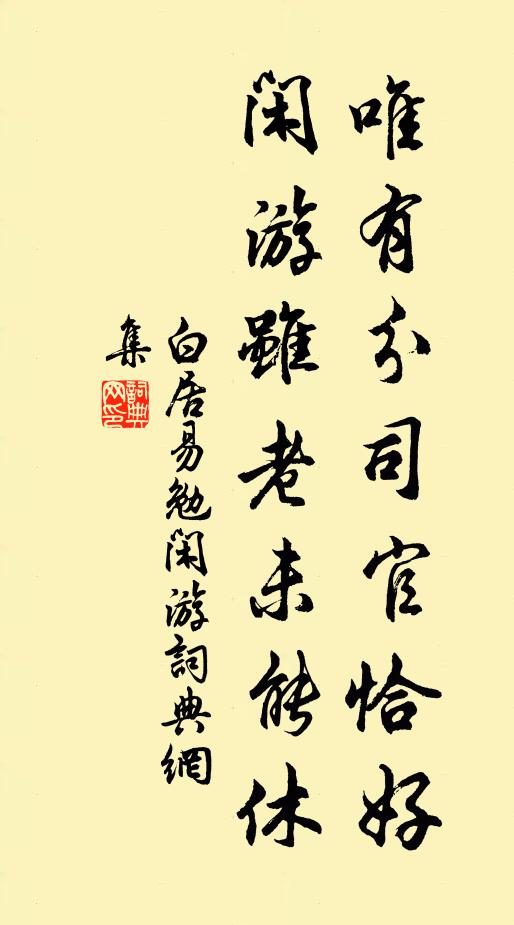 唯有分司官恰好
閑游雖老未能休
白居易勉閑游詞典網
集
詞典網印